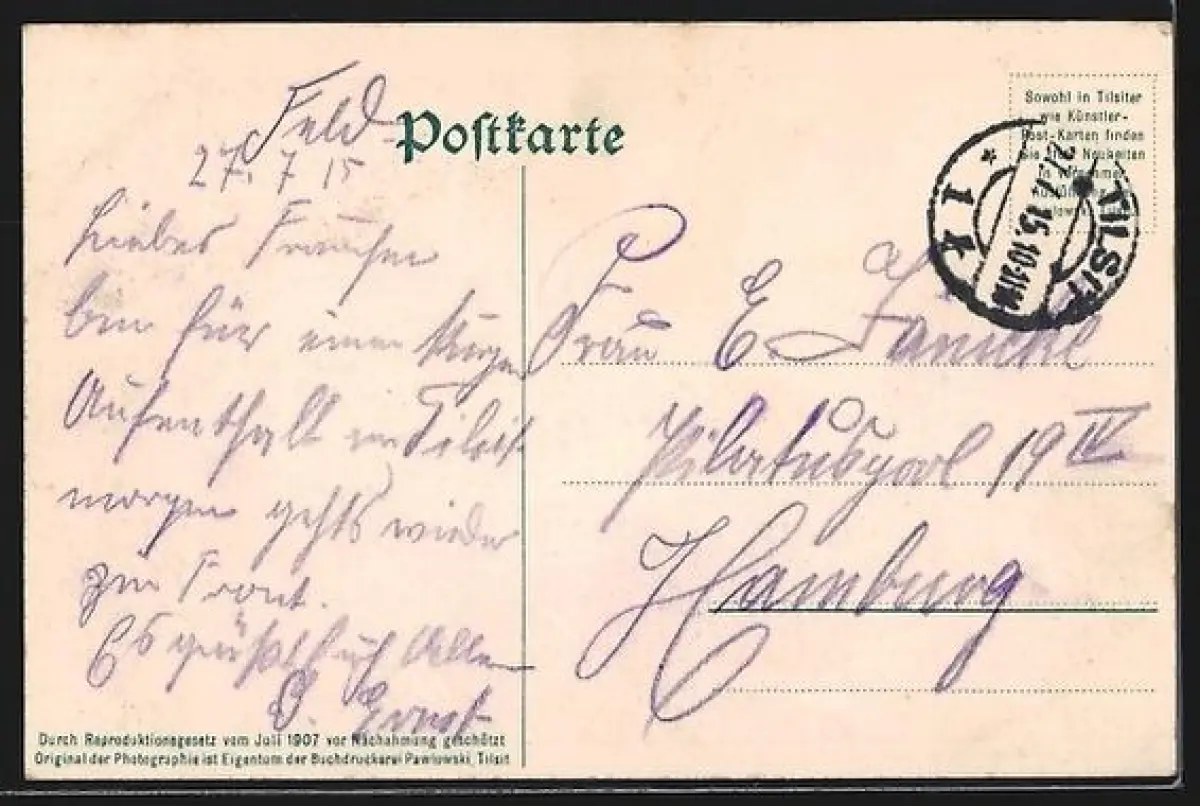 Feld-
Postkarte
27. 7 15
Liebes Frauchen
bin für einen kurzen
Aufenthalt in Tilsit
morgen gehts wieder
zur Front.
Es grüßt Euch Alle
E. Ernst
Frau E.
19 IV
Hamburg
Sowohl in Tilsiter
wie Künstler-
Post-Karten finden
Sie stets Neuheiten
in vornehmer
TILSIT
27.7.15.10-11V
* 1 k
Durch Reproduktionsgesetz vom Juli 1907 vor Nachahmung geschützt
Original der Photographie ist Eigentum der Buchdruckerei Pawlowski, Tilsit